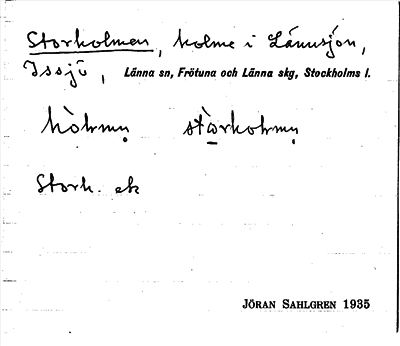 Storholmen, holme i Lännsjön,
Issjö, Länna sn, Frötuna och Länna skg, Stockholms l.
Storh. ek
JÖRAN SAHLGREN 1935